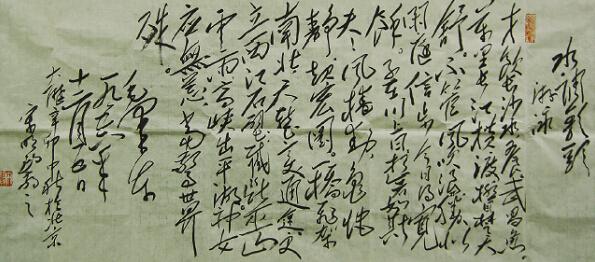 水调歌头
游泳
才饮长沙水又食武昌鱼。
万里长江横渡极目楚天
舒。不管风吹浪打胜似
闲庭信步今日得宽
馀。子在川上曰逝者如斯
夫。风樯动龟蛇
静起宏图一桥飞架
南北天堑变通途更
立西江石壁截断巫山
云雨高峡出平湖神女
应无恙当惊世界
殊。
毛泽东
一九五六年
十二月五日
辛卯中秋於北京